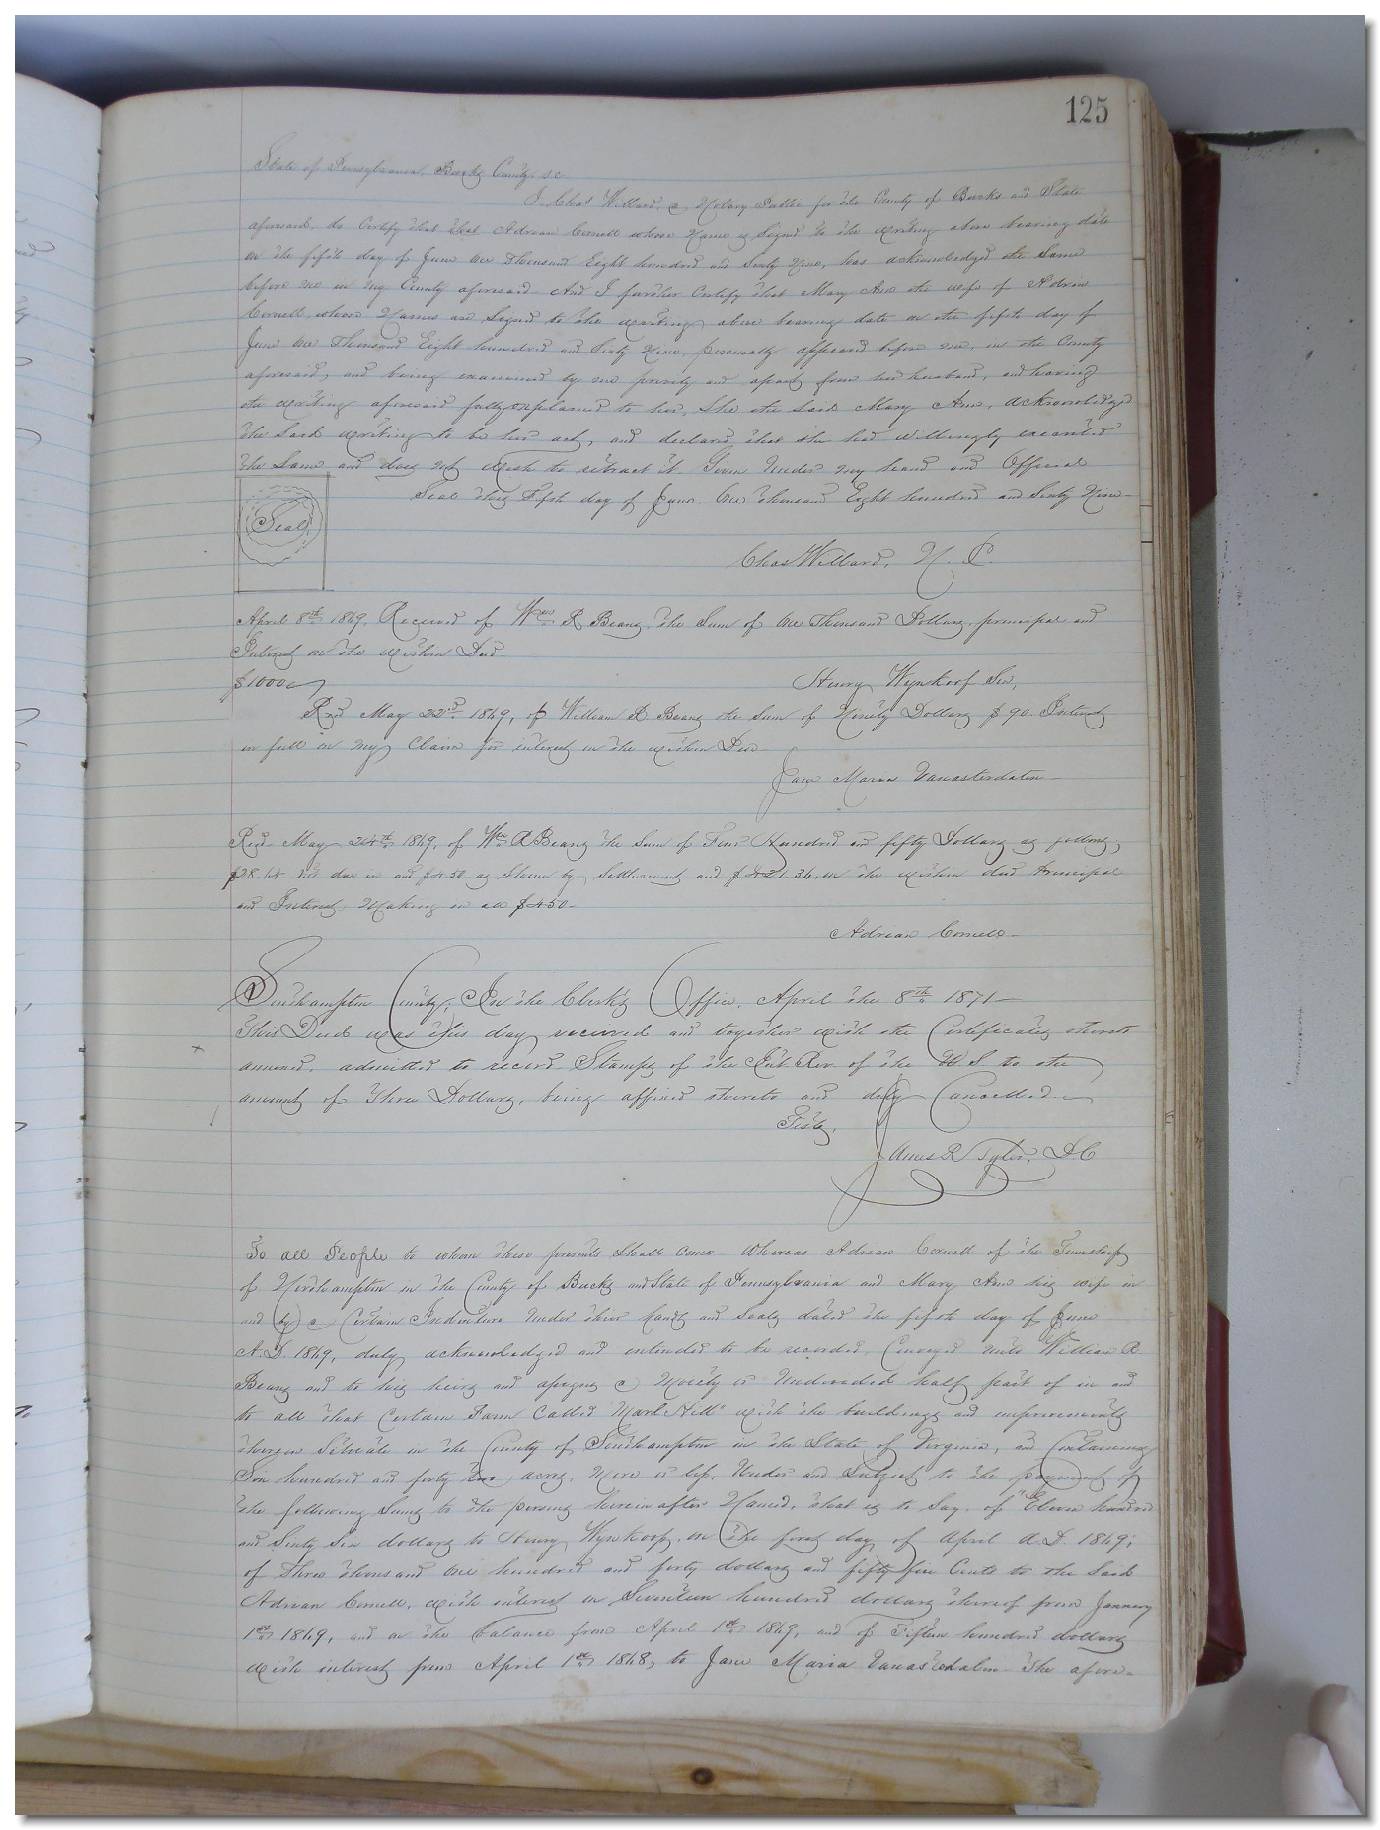 125
State of Pennsylvania, Bucks County, sc
I Chas Willard, a Notary Public for the County of Bucks and State
aforesaid, do Certify that that Adrian Cornell whose Name is Signed to the writing above bearing date
on the fifth day of June One Thousand Eight hundred and Sixty Nine, has acknowledged the Same
before me in my County aforesaid. And I further Certify that Mary Ann the wife of Adrian
Cornell, whose Names are Signed to the writing above bearing date on the fifth day of
June One Thousand Eight hundred and Sixty Nine, personally appeared before me, in the County
aforesaid, and being examined by me privily and apart from her husband, and having
the writing aforesaid fully explained to her, She the Said Mary Ann, acknowledged
the Said writing to be her act, and declared that she had willingly executed
the Same and does not wish to retract it. Given Under my hand and Official
Seal this Fifth day of June One thousand Eight hundred and Sixty Nine—
Seal
Chas Willard, N. P.
April 8th 1869, Received of Wm R Beans, the Sum of One Thousand Dollars, principal and
Interest on the within Deed
$1000
Henry Wynkoop Sen,
Recd May 22d 1869, of William R Beans the Sum of Ninety Dollars $90. Interest
in full on my Claim for interest in the within Deed
Jane Maria Vanartsdalen—
Recd May 24th 1869, of Wm R Beans the Sum of Four Hundred and fifty Dollars as follows,
due and as Shown by Settlement and on the within deed Principal
and Interest, Making in all $450—
Adrian Cornell—
Southampton County, In the Clerk's Office, April the 8th 1871—
This Deed was this day received and together with the Certificates thereto
annexed, admitted to record. Stamps of the Int. Rev. of the U. S. to the
amount of Three Dollars, being affixed thereto and duly Cancelled—
Teste,
James R Tyler, D.C
To all People to whom these presents Shall come Whereas Adrian Cornell of the Township
of Northampton in the County of Bucks and State of Pennsylvania and Mary Ann his wife in
and by a Certain Indenture Under their hands and Seals dated the fifth day of June
A.D. 1869, duly acknowledged and intended to be recorded, Conveyed unto William R
Beans and to his heirs and assigns a Moiety or Undivided half part of in and
to all that Certain Farm Called "Marl Hill" with the buildings and improvements
thereon Situate in the County of Southampton in the State of Virginia, and Containing
hundred and forty acres, More or less, Under and Subject to the payment of
the following Sums to the persons hereinafter Named, that is to Say, of "Eleven hundred
and Sixty Six dollars to Henry Wynkoop, on the first day of April A.D. 1869;
of Three thousand One hundred and forty dollars and fifty five Cents to the Said
Adrian Cornell, with interest on Seventeen hundred dollars thereof from January
1st 1869, and on the balance from April 1st 1869, and of Fifteen hundred dollars
with interest from April 1st 1868, to Jane Maria Vanartsdalen The afore-